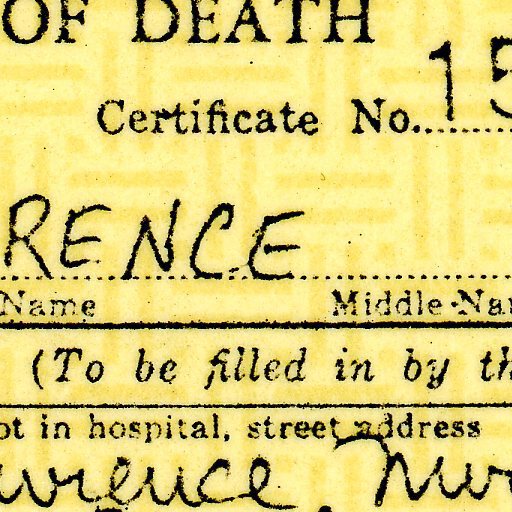 OF DEATH
Certificate No. 15
RENCE
Name Middle Na
(To be filled in by th
ot in hospital, street address